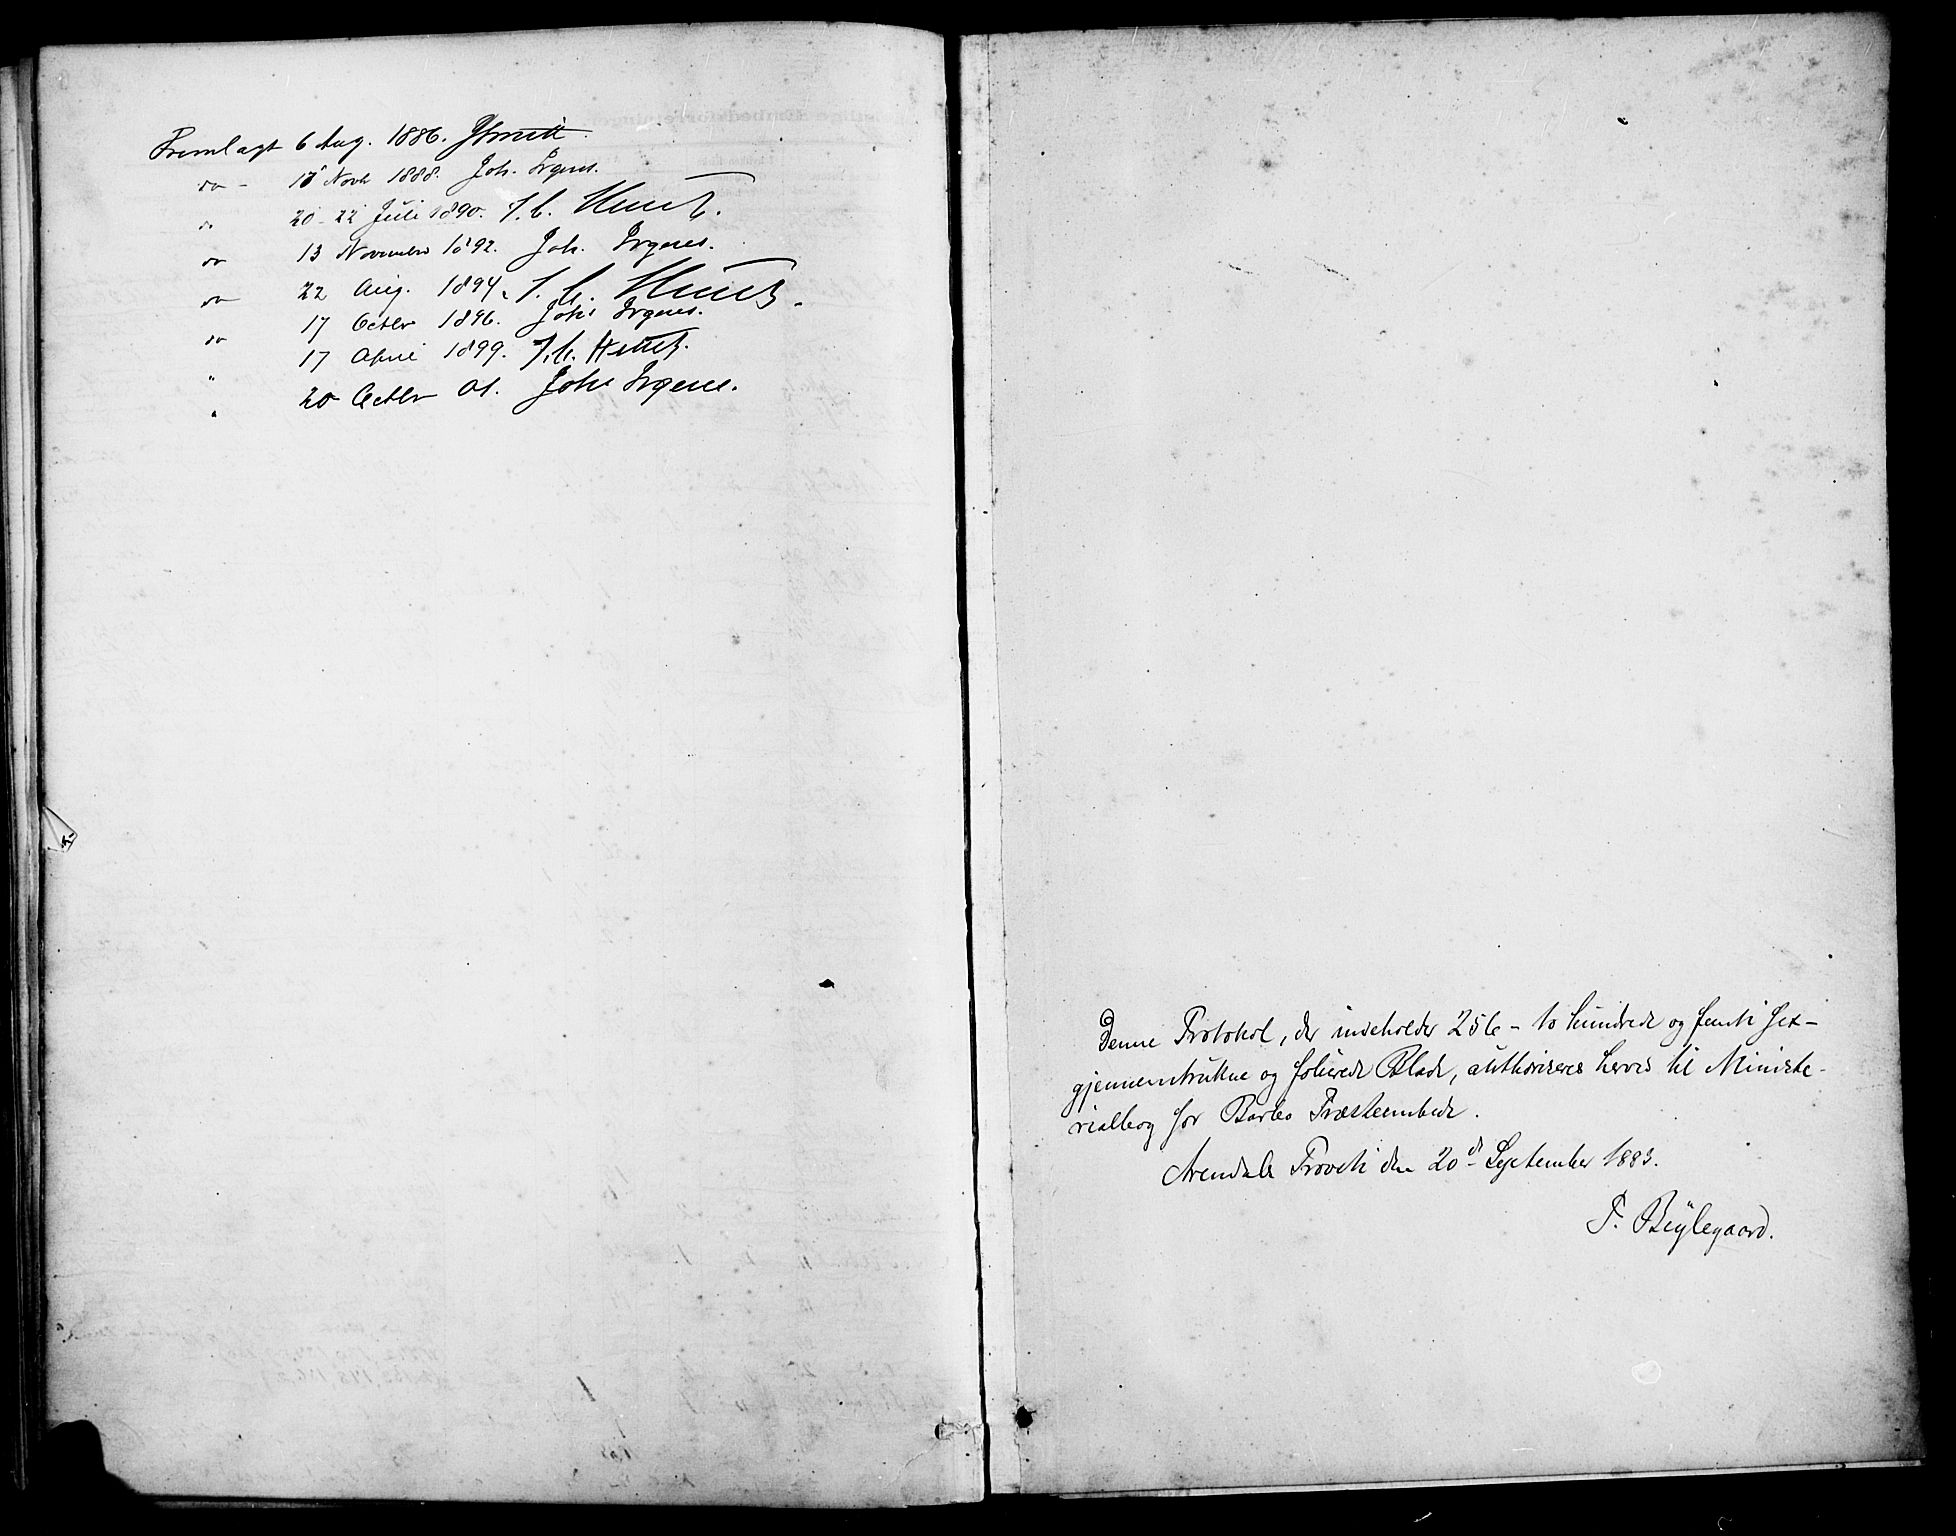 Fremlagt 6 Aug. 1886.
do - 18 Novb 1888. Joh. Irgens.
do 20-22 Juli 1890. J. C.
do 13 November 1892. Joh. Irgens.
do 22 Aug. 1894. J. C.
do 17 Octbr 1896. Johs Irgens.
" 17 April 1899. J. C.
" 20 Octbr 01. Johs Irgens.
Denne Protokol, der indeholder 256 - to hundrede og femti sex -
gjennemtrukne og folierede Blade, authoriseres herved til Ministe-
rialbog for Barbo Præsteembede.
Arendals Provsti den 20d September 1883.
P. Bøylegaard.